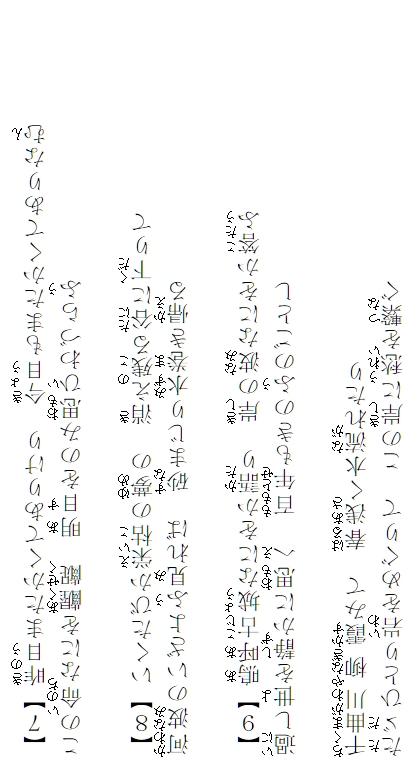 【7】昨日またかくてありけり　今日もまたかくてありなむ
この命なにを齷齪　明日をのみ思ひわづらふ
【8】いくたびか栄枯の夢の　消え残る谷に下りて
河波のいざよふ見れば　砂まじり水巻き帰る
【9】嗚呼古城なにをか語り　岸の波なにをか答ふ
過し世を静かに思へ　百年もきのふのごとし
千曲川柳霞みて　春浅く水流れたり
たゞひとり岩をめぐりて　この岸に愁を繋ぐ